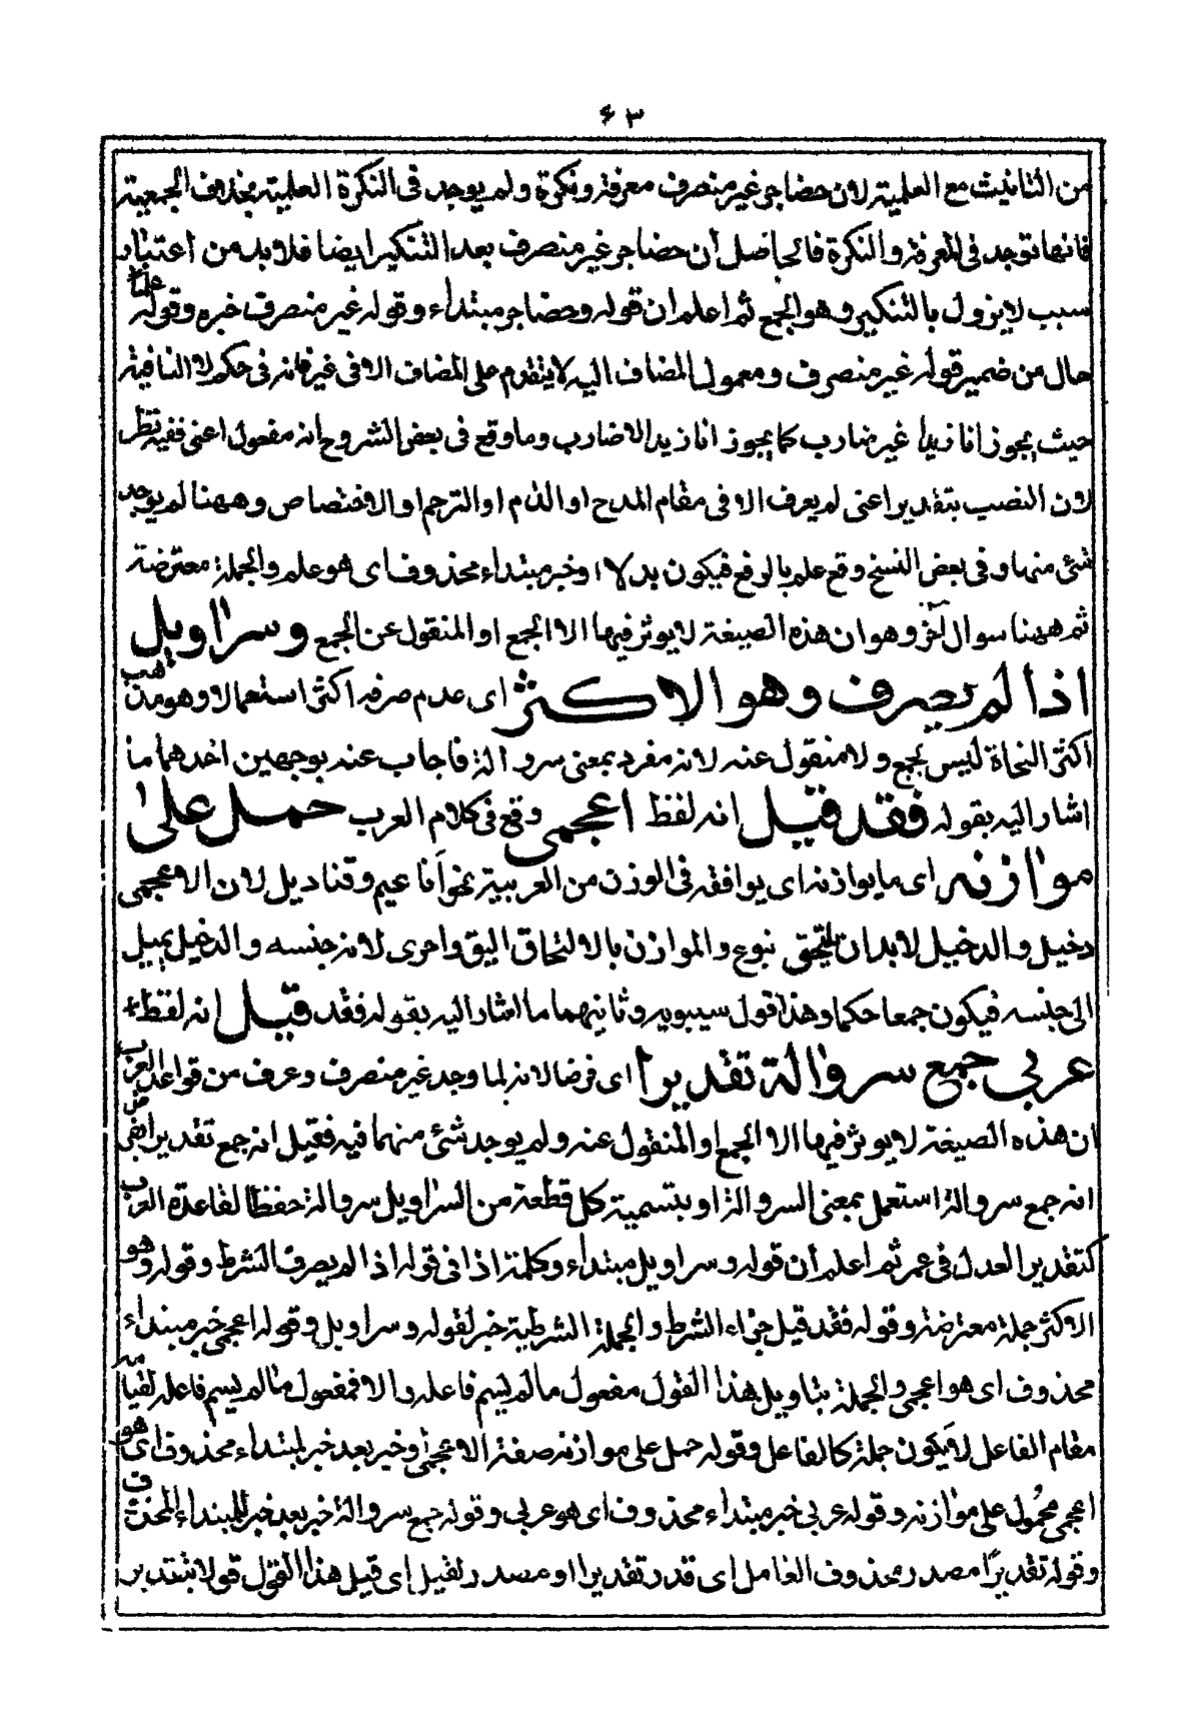 ٤٣
من التانيث مع العلمية لان حضاجر غير منصرف معرفة ونكرة ولم يوجد فى النكرة العلمية بخلاف الجمعية
فانها توجد فى المعرفة والنكرة فالحاصل ان حضاجر غير منصرف بعد التنكير ايضا فلا بد من اعتبار
سبب لا يزول بالتنكير وهو الجمع ثم اعلم ان قوله وحضاجر مبتداء وقوله غير منصرف خبره وقوله علما
حال من ضمير قوله غير منصرف ومعمول المضاف اليه لا يتقدم على المضاف الا فى غير فانه فى حكم لا النافية
حيث يجوز انا زيدا غير ضارب كما يجوز انا زيدا لا ضارب وما وقع فى بعض الشروح انه مفعول اعنى ففيه نظر
لان النصب بتقدير اعنى لم يعرف الا فى مقام المدح او الذم او الترحم او الاختصاص وههنا لم يوجد
شئ منها وفى بعض النسخ وقع علم بالرفع فيكون بدلا او خبر مبتداء محذوف اى هو علم والجملة معترضة
ثم ههنا سوال آخر وهو ان هذه الصيغة لا يوثر فيها الا الجمع او المنقول عن الجمع وسراويل
اذا لم يصرف وهو الاكثر اى عدم صرفه اكثر استعمالا وهو مذهب
اكثر النحاة ليس بجمع ولا منقول عنه لانه مفرد بمعنى سروالة فاجاب عنه بوجهين احدهما ما
اشار اليه بقوله فقد قيل انه لفظ اعجمى وقع فى كلام العرب حمل على
موازنه اى ما يوازنه اى يوافقه فى الوزن من العربية نحو اناعيم وقناديل لان الاعجمى
دخيل والدخيل لا بد ان يلتحق بنوع والموازن بالالتحاق اليق واحرى لانه جنسه والدخيل يميل
الى جنسه فيكون جمعا حكما وهذا قول سيبويه وثانيهما ما اشار اليه بقوله فقد قيل انه لفظ
عربى جمع سروالة تقديرا اى فرضا لانه لما وجد غير منصرف وعرف من قواعد العرب
ان هذه الصيغة لا يوثر فيها الا الجمع او المنقول عنه ولم يوجد شئ منهما فيه فقيل انه جمع تقديرا يفرض
انه جمع سروالة استعمل بمعنى السروالة او بتسمية كل قطعة من السراويل سروالة حفظا لقاعدة العرب
كتقدير العدل فى عمر ثم اعلم ان قوله وسراويل مبتداء وكلمة اذا فى قوله اذا لم يصرف الشرط وقوله وهو
الاكثر جملة معترضة وقوله فقد قيل جزاء الشرط والجملة الشرطية خبر لقوله وسراويل وقوله اعجمى خبر مبتداء
محذوف اى هو اعجمى والجملة بتاويل هذا القول مفعول ما لم يسم فاعله والا فمفعول ما لم يسم فاعله لقيامه
مقام الفاعل لا يكون جملة كالفاعل وقوله حمل على موازنه صفة الاعجمى او خبر بعد خبر لمبتداء محذوف اى هو
اعجمى محمول على موازنه وقوله عربى خبر مبتداء محذوف اى هو عربى وقوله جمع سروالة خبر بعد خبر للمبتداء المحذوف
وقوله تقديرًا مصدر محذوف العامل اى قدر تقديرا او مصدر لقيل اى قيل هذا القول قولا بتقدير